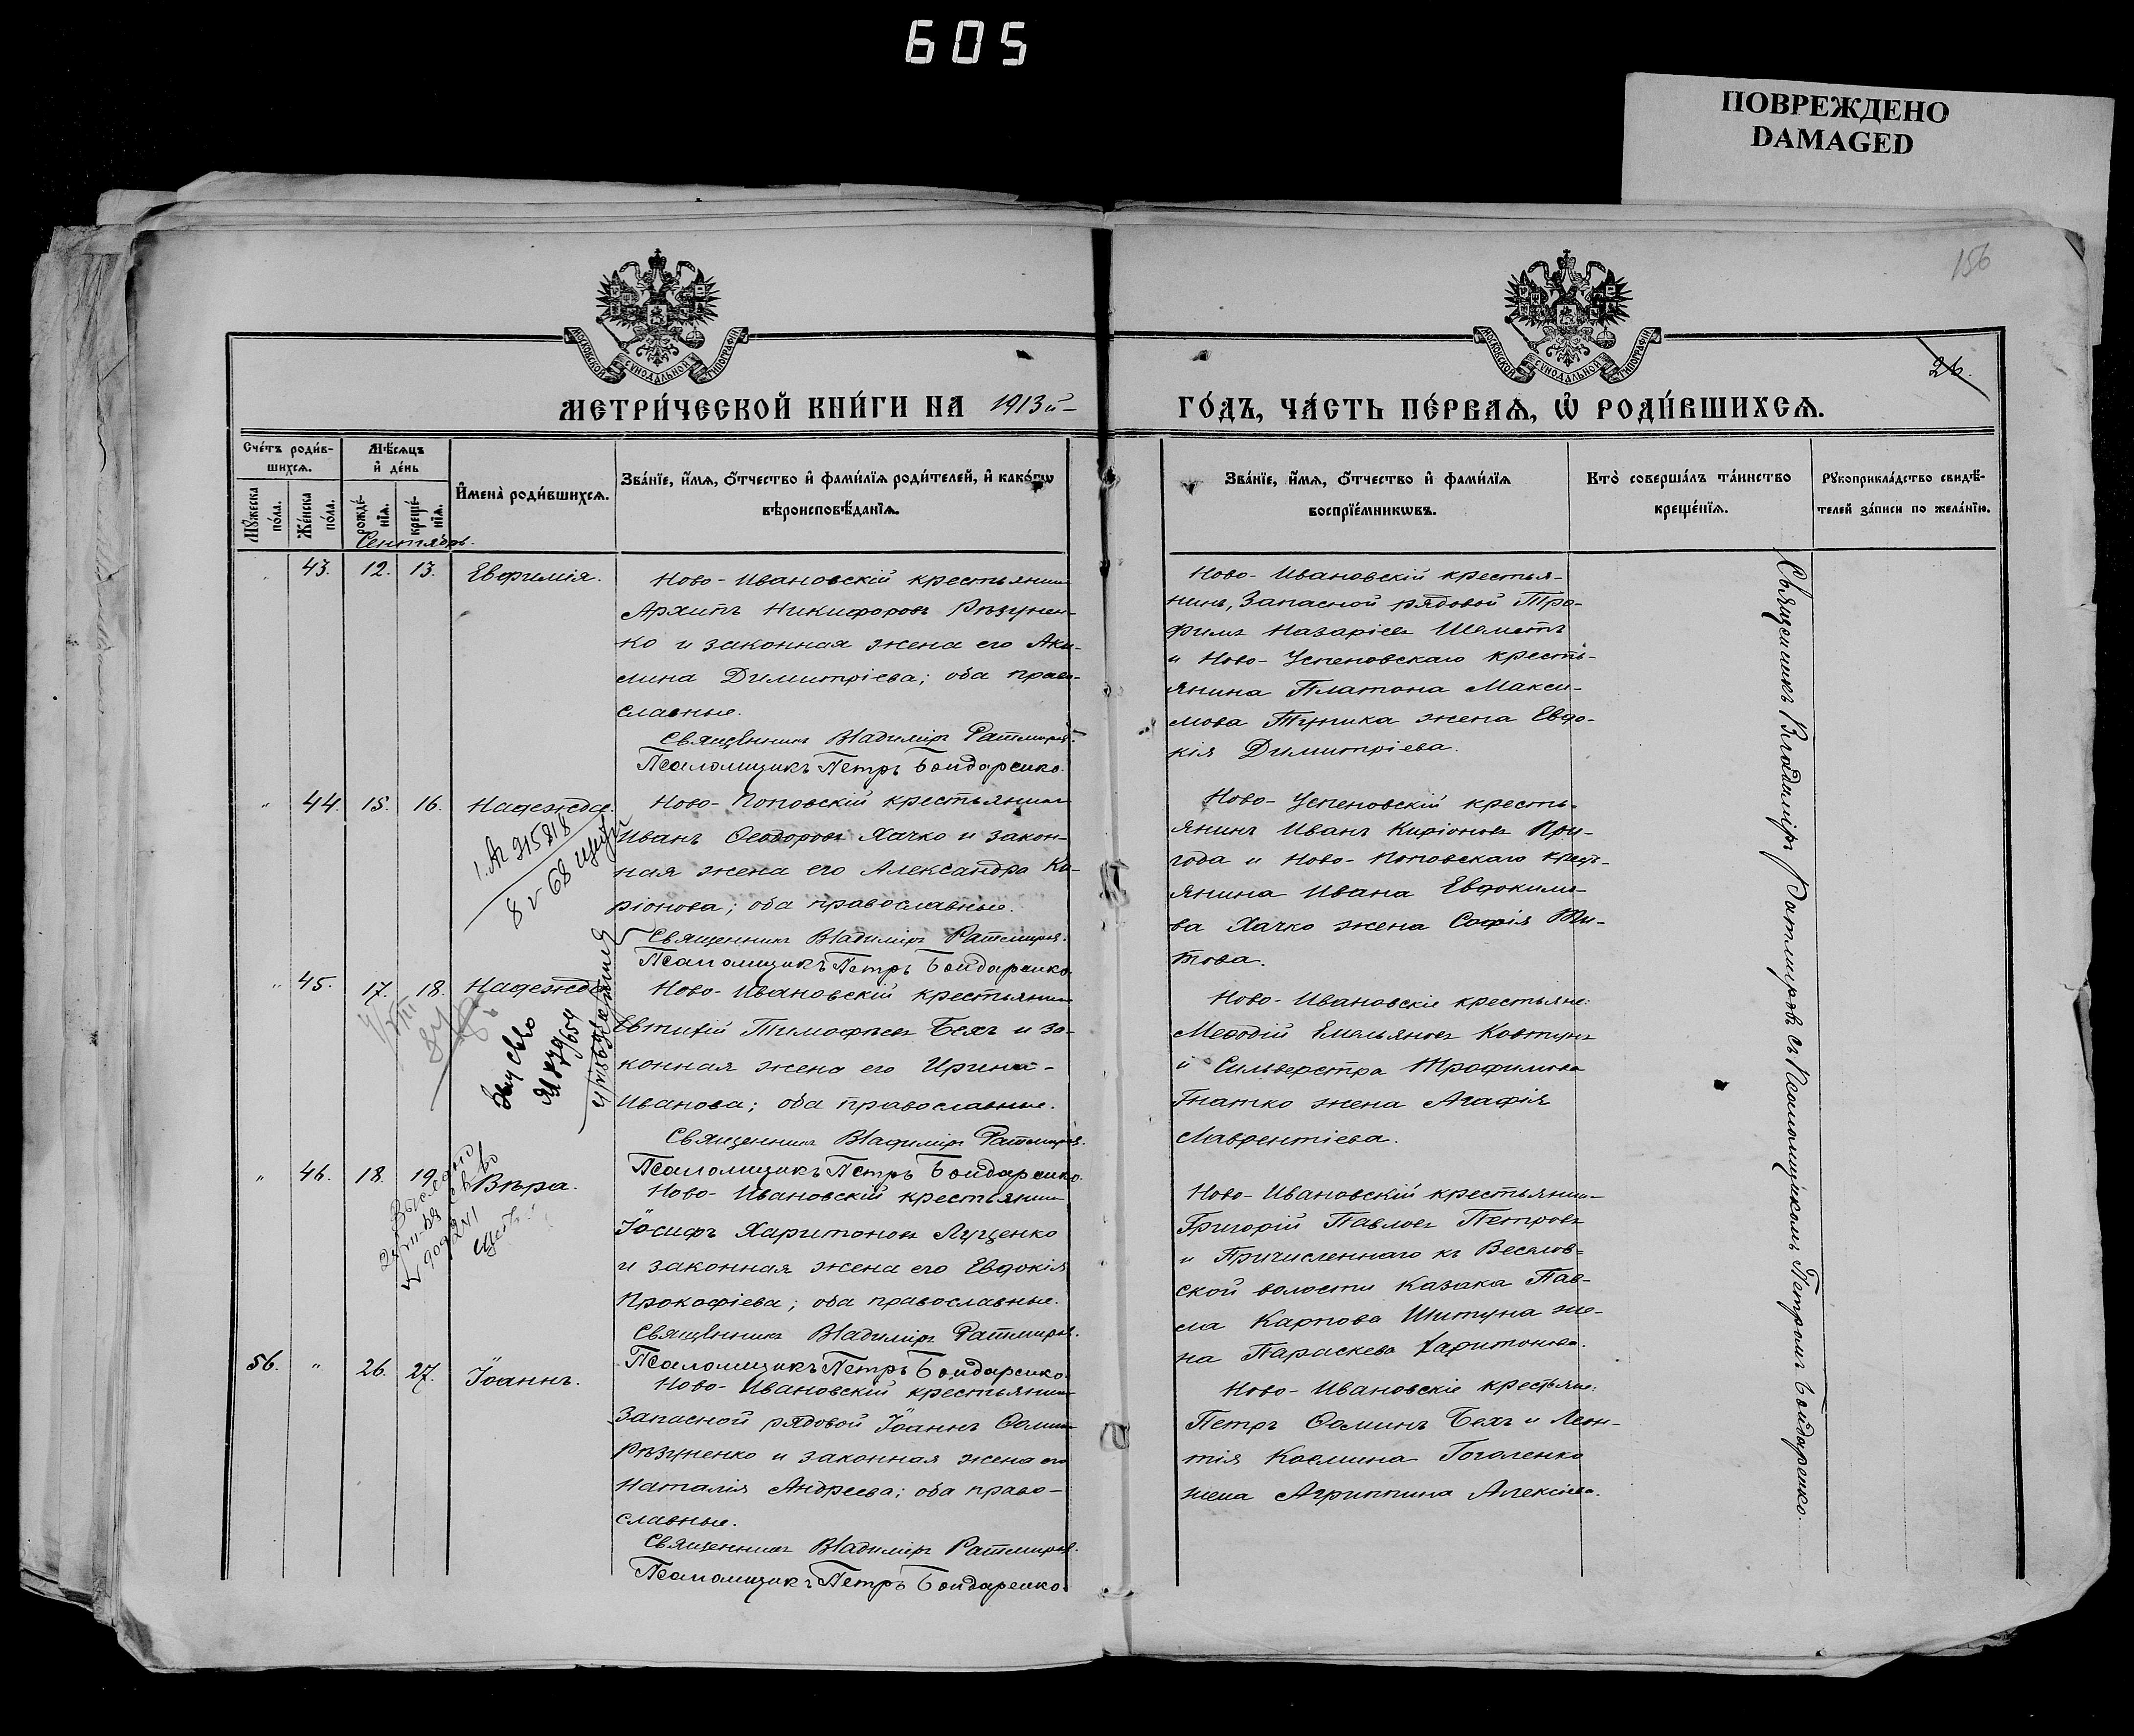 605
ПОВРЕЖДЕНО
DAMAGED
156
МОСКОВСКОЙ СУНОДАЛЬНОЙ ТИПОГРАФІИ
МОСКОВСКОЙ СУНОДАЛЬНОЙ ТИПОГРАФІИ
26.
МЕТРИ́ЧЕСКОЙ КНИ́ГИ НА 1913й
ГО́ДЪ, ЧА́СТЬ ПЕ́РВАѦ, Ѡ҆ РОДИ́ВШИХСѦ.
Сче́тъ роди́в-
шихсѧ.
Мꙋ́жеска
по́ла.
Же́нска
по́ла.
Мѣ́сѧцъ
и҆ де́нь
рожде́-
нїѧ.
креще́-
нїѧ.
И҆мена̀ роди́вшихсѧ.
Зва́нїе, и҆́мѧ, ѻ҆́тчество и҆ фами́лїѧ роди́телей, и҆ како́гѡ
вѣроисповѣ́данїѧ.
Зва́нїе, и҆́мѧ, ѻ҆́тчество и҆ фами́лїѧ
воспрїе́мникѡвъ.
Кто̀ соверша́лъ та́инство
креще́нїѧ.
Рꙋкоприкла́дство свидѣ́-
телей за́писи по жела́нїю.
Сентябрь.
43. 12. 13. Евфимія.
Ново-Ивановскій крестьянин
Архипъ Никифоровъ Рѣзунен-
ко и законная жена его Аки-
лина Димитріева; оба право-
славные.
Священникъ Владиміръ Ратмировъ.
Псаломщикъ Петръ Бондаренко.
Ново-Ивановскій крестья-
нинъ, Запасной рядовой Тро-
фимъ Назаріевъ Шеметъ
и Ново-Успеновскаго кресть-
янина Платона Макси-
мова Тупика жена Евдо-
кія Димитріева.
" 44. 15. 16. Надежда.
Ново-Поповскій крестьянинъ
Иванъ Ѳеодоровъ Хачко и закон-
ная жена его Александра Ки-
ріонова; оба православные.
Священникъ Владиміръ Ратмировъ.
Псаломщикъ Петръ Бондаренко.
Ново-Успеновскій кресть-
янинъ Иванъ Киріоновъ При-
года и Ново-Поповскаго крест-
янина Ивана Евдокимо-
ва Хачко жена Софія Ти-
това.
" 45. 17. 18. Надежда
Ново-Ивановскій крестьянин
Евтихій Тимофѣевъ Бехъ и за-
конная жена его Ирина
Иванова; оба православные.
Священникъ Владиміръ Ратмировъ.
Псаломщикъ Петръ Бондаренко.
Ново-Ивановскіе крестьяне:
Меѳодій Емельяновъ Ковтунъ
и Сильверстра Трофимова
Гнатко жена Агафія
Лаврентіева.
" 46. 18. 19. Вѣра.
Ново-Ивановскій крестьянин
Іосифъ Харитоновъ Луценко
и законная жена его Евдокія
Прокофіева; оба православные.
Священникъ Владиміръ Ратмировъ.
Псаломщикъ Петръ Бондаренко.
Ново-Ивановскій крестьянин
Григорій Павловъ Петровъ
и Причисленнаго къ Веселов-
ской волости Казака Пав-
ла Карпова Шитуна же-
на Параскева Харитонова.
56. " 26. 27. Іоаннъ.
Ново-Ивановскій крестьянин
Запасной рядовой Іоаннъ Ѳомин
Рѣзуненко и законная жена его
Наталія Андреева; оба право-
славные.
Священникъ Владиміръ Ратмировъ.
Псаломщикъ Петръ Бондаренко.
Ново-Ивановскіе крестьяне:
Петръ Ѳоминъ Бехъ и Леон-
тія Космина Гоголенко
жена Агриппина Алексіева.
Священникъ Владиміръ Ратмировъ съ Псаломщикомъ Петромъ Бондаренко.